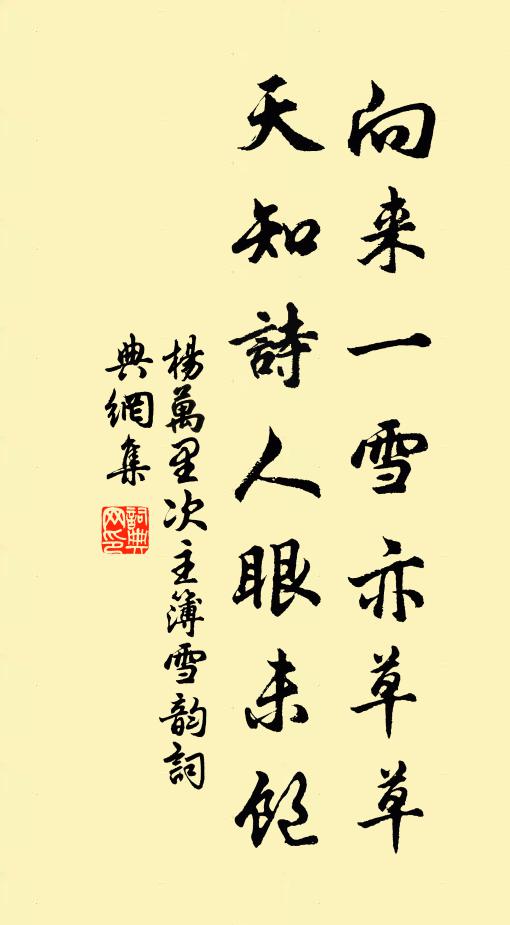 向来一雪亦草草
天知詩人眼未飽
楊萬里次主簿雪韵詞
典網集
詞典
网印